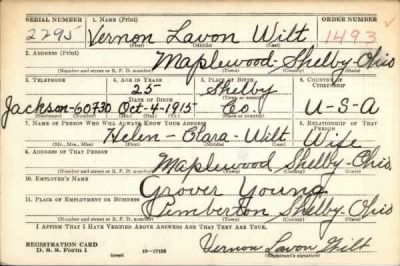 SERIAL NUMBER 1. NAME (Print) ORDER NUMBER
2295 Vernon Lavon Wilt 1493
(First) (Middle) (Last)
2. ADDRESS (Print)
Maplewood-Shelby-Ohio
(Number and street or R. F. D. number) (Town) (County) (State)
3. TELEPHONE 4. AGE IN YEARS 5. PLACE OF BIRTH 6. COUNTRY OF CITIZENSHIP
25 Shelby
DATE OF BIRTH (Town or county)
Jackson-60730 Oct-4-1915 Co. U-S-A
(Exchange) (Number) (Mo.) (Day) (Yr.) (State or country)
7. NAME OF PERSON WHO WILL ALWAYS KNOW YOUR ADDRESS 8. RELATIONSHIP OF THAT PERSON
Helen-Clara-Wilt Wife
(Mr., Mrs., Miss) (First) (Middle) (Last)
9. ADDRESS OF THAT PERSON
Maplewood Shelby-Ohio.
(Number and street or R. F. D. number) (Town) (County) (State)
10. EMPLOYER'S NAME
Grover Young
11. PLACE OF EMPLOYMENT OR BUSINESS
Pemberton Shelby Ohio
(Number and street or R. F. D. number) (Town) (County) (State)
I AFFIRM THAT I HAVE VERIFIED ABOVE ANSWERS AND THAT THEY ARE TRUE.
REGISTRATION CARD
D. S. S. Form 1 Vernon Lavon Wilt
(Registrant's signature)